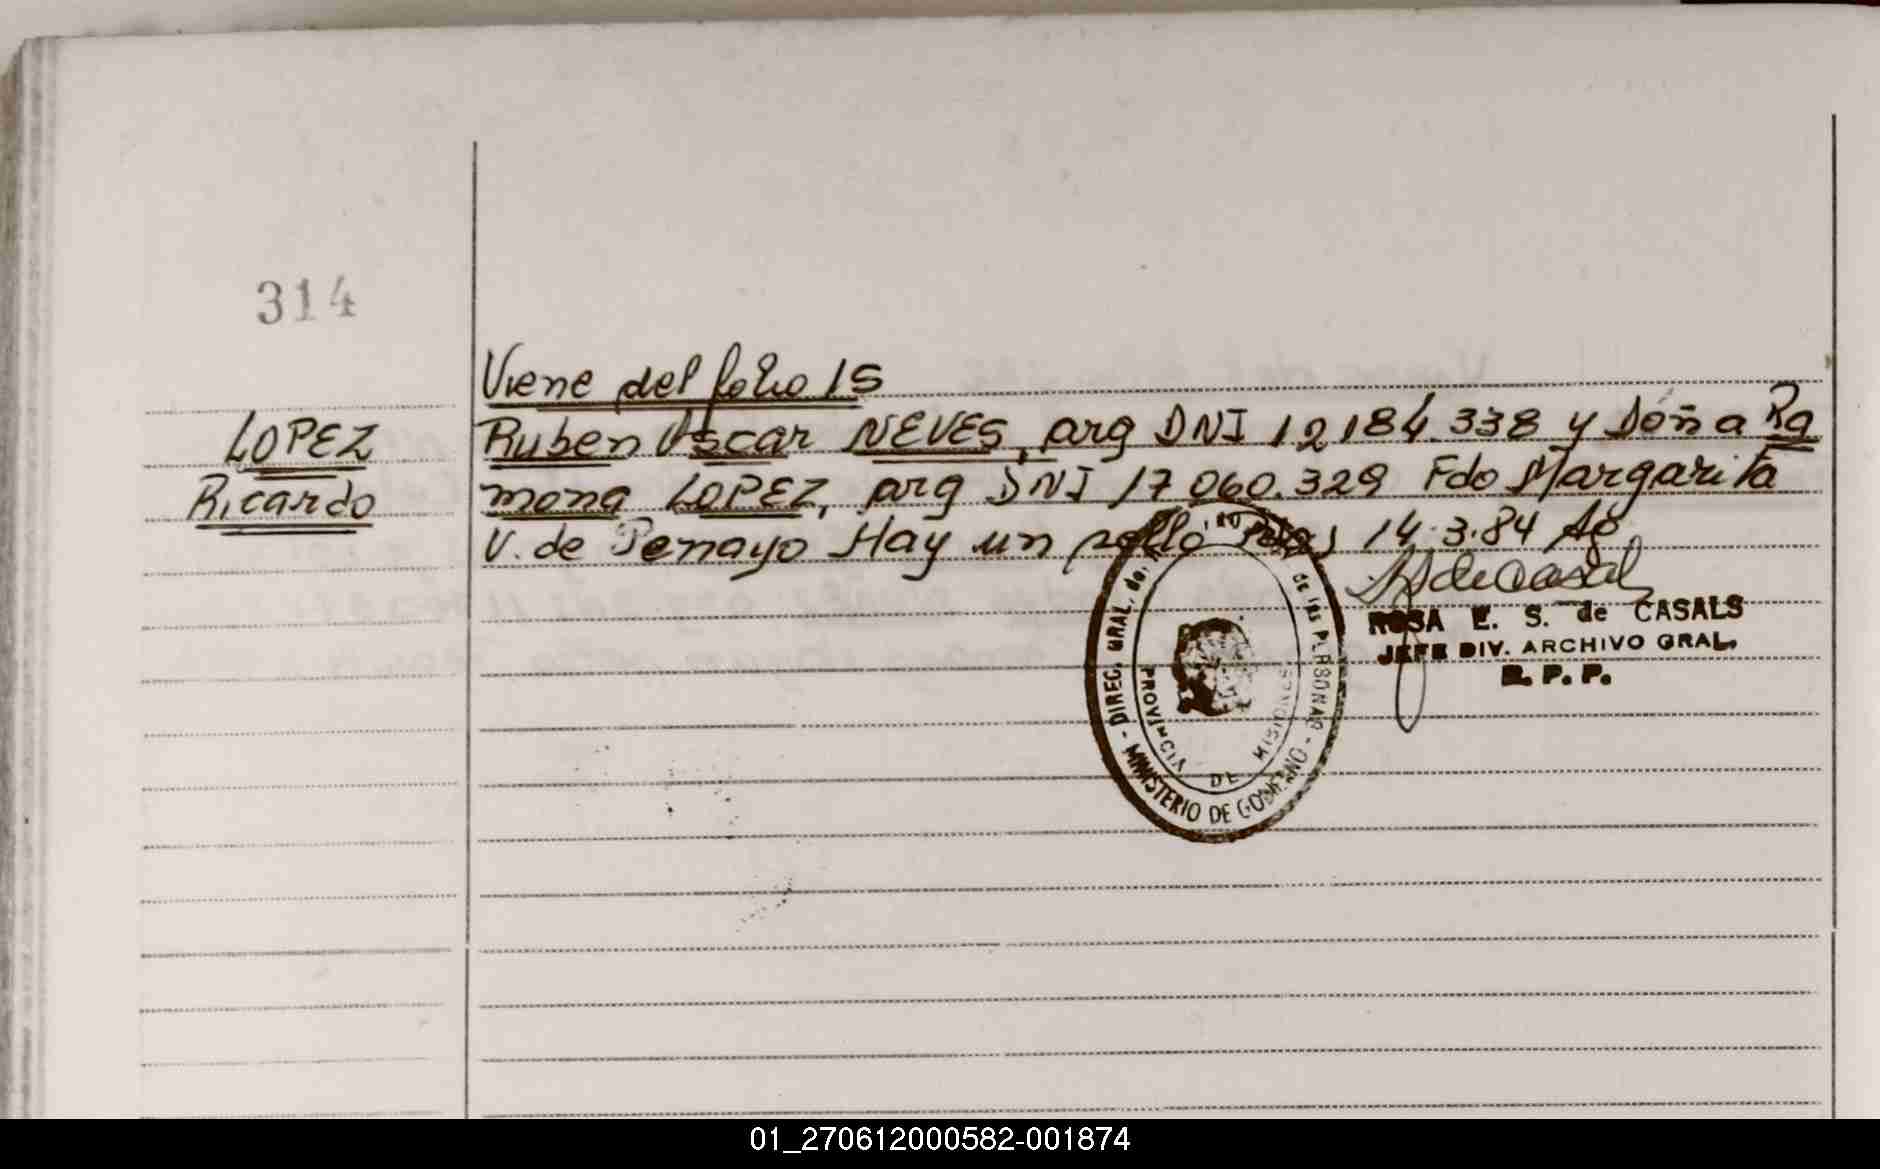 314
Viene del folio 15
LOPEZ
Ricardo
Ruben Oscar NEVES, arg DNI 12184.338 y Doña Ra
mona LOPEZ, arg DNI 17 060.329 Fdo Margarita
V. de Penayo Hay un sello Pdas 14.3.84
ROSA E. S. de CASALS
JEFE DIV. ARCHIVO GRAL.
R. P. P.
DIREC. GRAL. de las PERSONAS - MINISTERIO DE GOBIERNO -
PROVINCIA DE MISIONES
01_270612000582-001874